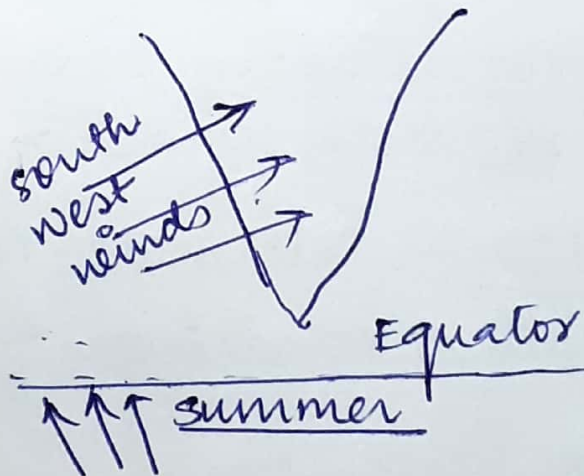 south
west
winds
Equator
summer